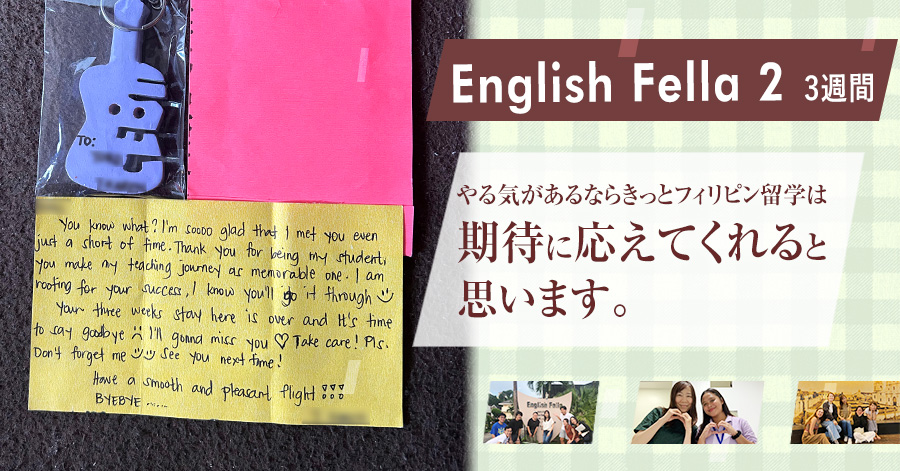 TO:
You know what? I'm soooo glad that I met you even
just a short of time. Thank you for being my student,
you make my teaching journey as memorable one. I am
rooting for your success, I know you'll go it through
Your three weeks stay here is over and It's time
to say goodbye I'll gonna miss you ♡ Take care! Pls.
Don't forget me See you next time!
Have a smooth and pleasant flight!!!
BYEBYE......
English Fella 2 3週間
やる気があるならきっとフィリピン留学は
期待に応えてくれると
思います。
English Fella